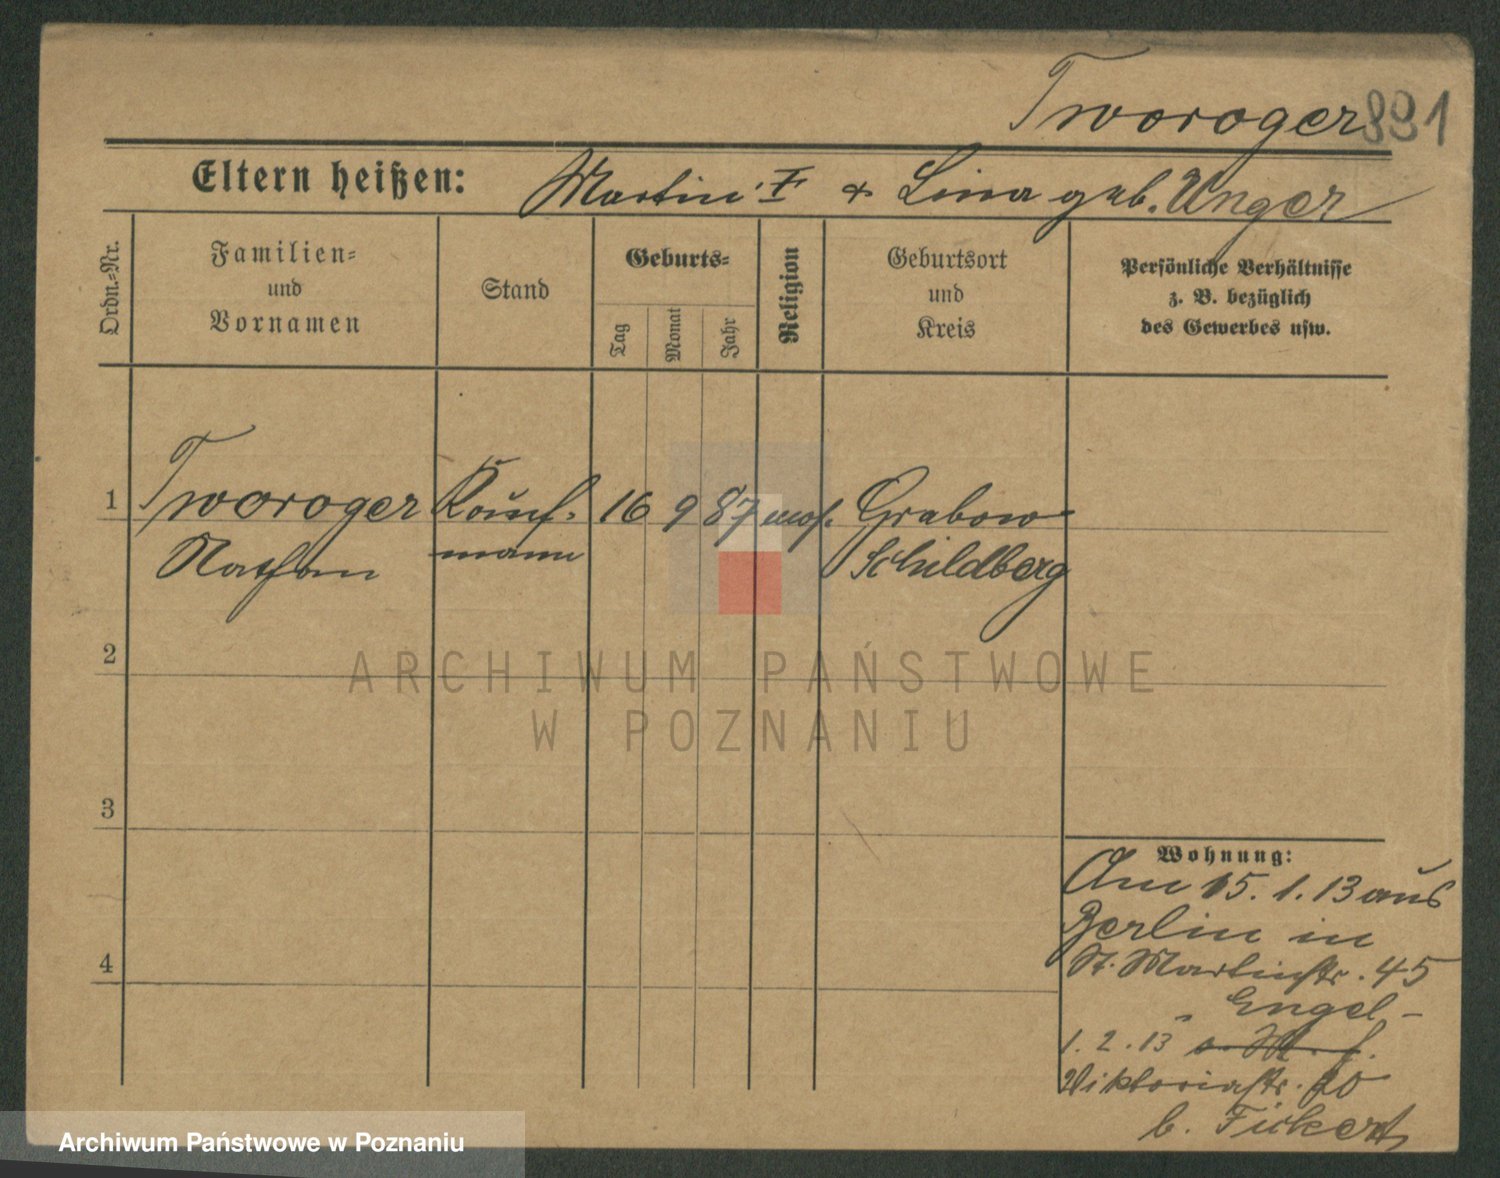 Tworoger 891
Eltern heißen: Martin & Lina geb. Unger
Ordn.-Nr.
Familien-
und
Vornamen
Stand
Geburts-
Tag
Monat
Jahr
Religion
Geburtsort
und
Kreis
Persönliche Verhältnisse
z. B. bezüglich
des Gewerbes usw.
1 Tworoger Kauf- 16 9 87 mos. Grabow
Nathan mann Schildberg
2
3
4
Wohnung:
Am 15. 1. 13 aus
Berlin in
St. Martinstr. 45
" Engel-
1. 2. 13
Viktoriastr. 20
b. Fickert
ARCHIWUM PAŃSTWOWE
W POZNANIU
Archiwum Państwowe w Poznaniu